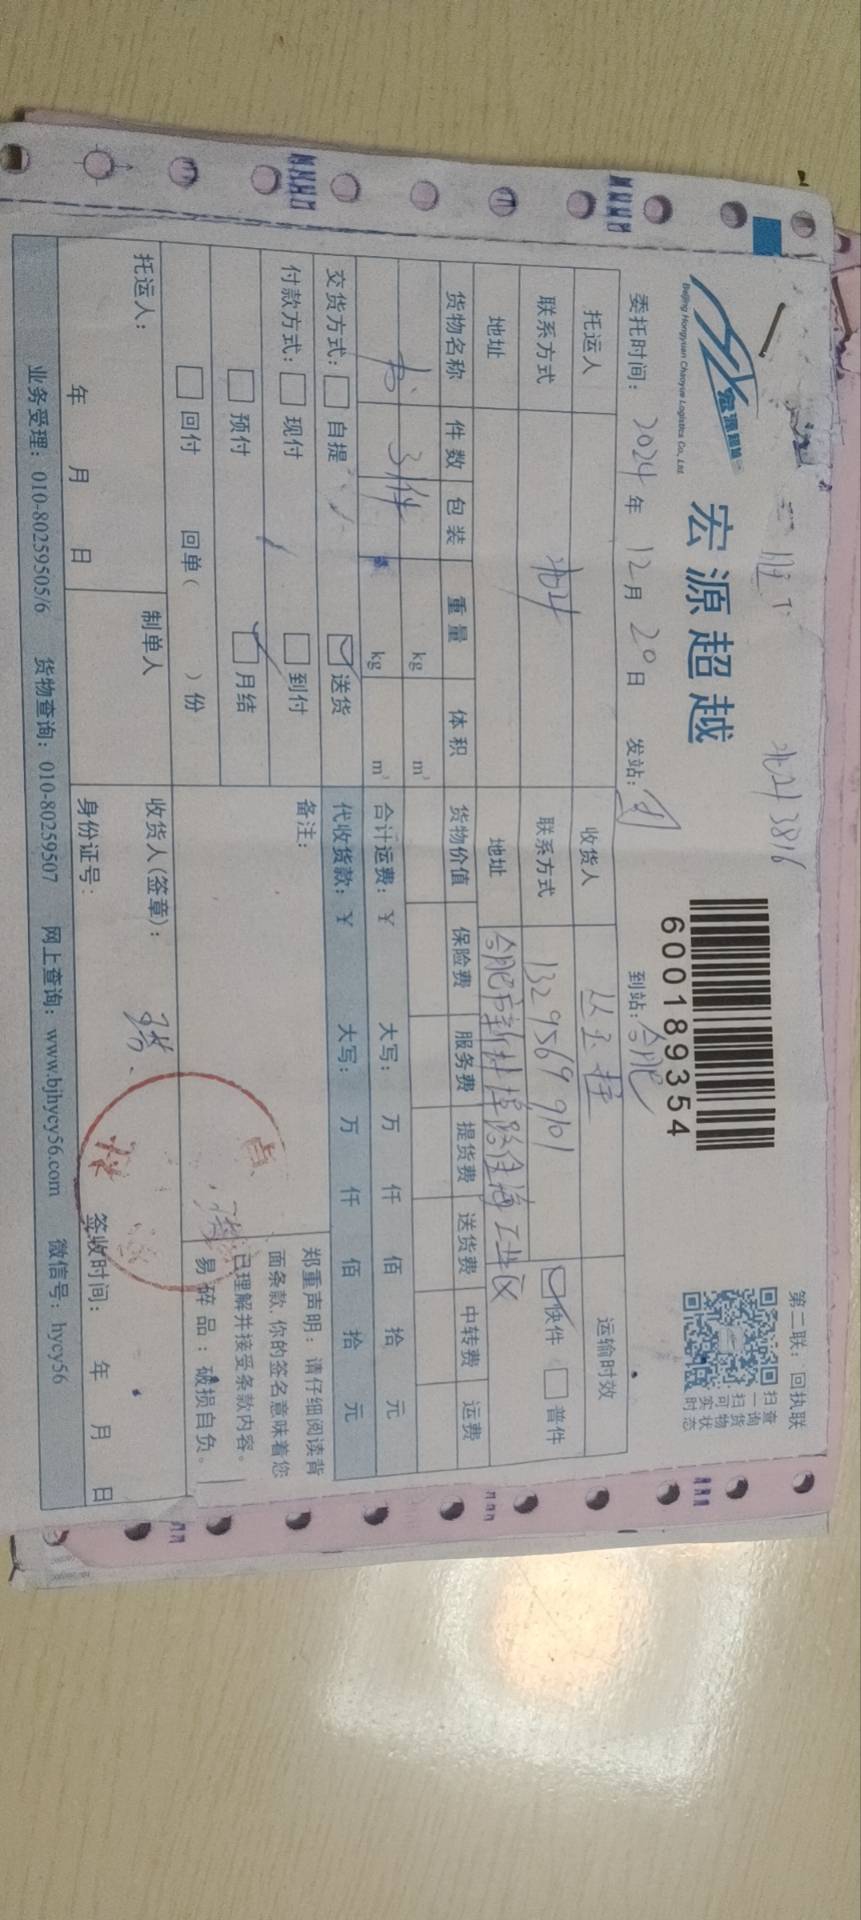 北24 3816
第二联：回执联
宏源超越
宏源超越
Beijing Hongyuan Chaoyue Logistics Co., Ltd.
600189354
扫一扫可实时
查询货物状态
委托时间：2024年12月20日 发站： 到站：合肥
托运人 收货人 运输时效
联系方式 北24 联系方式 13295699101 快件 普件
地址 地址 合肥市新蚌埠路 工业区
货物名称 件数 包装 重量 体积 货物价值 保险费 服务费 提货费 送货费 中转费 运费
书 3件 kg m³
kg m³ 合计运费：¥ 大写： 万 仟 佰 拾 元
交货方式： 自提 送货 代收货款：¥ 大写： 万 仟 佰 拾 元
付款方式： 现付 到付 备注：
预付 月结
回付 回单( )份
郑重声明：请仔细阅读背
面条款,你的签名意味着您
已理解并接受条款内容。
易碎品：破损自负。
托运人： 制单人 收货人(签章)：
年 月 日 身份证号： 签收时间： 年 月 日
业务受理：010-80259505/6 货物查询：010-80259507 网上查询：www.bjhycy56.com 微信号：hycy56